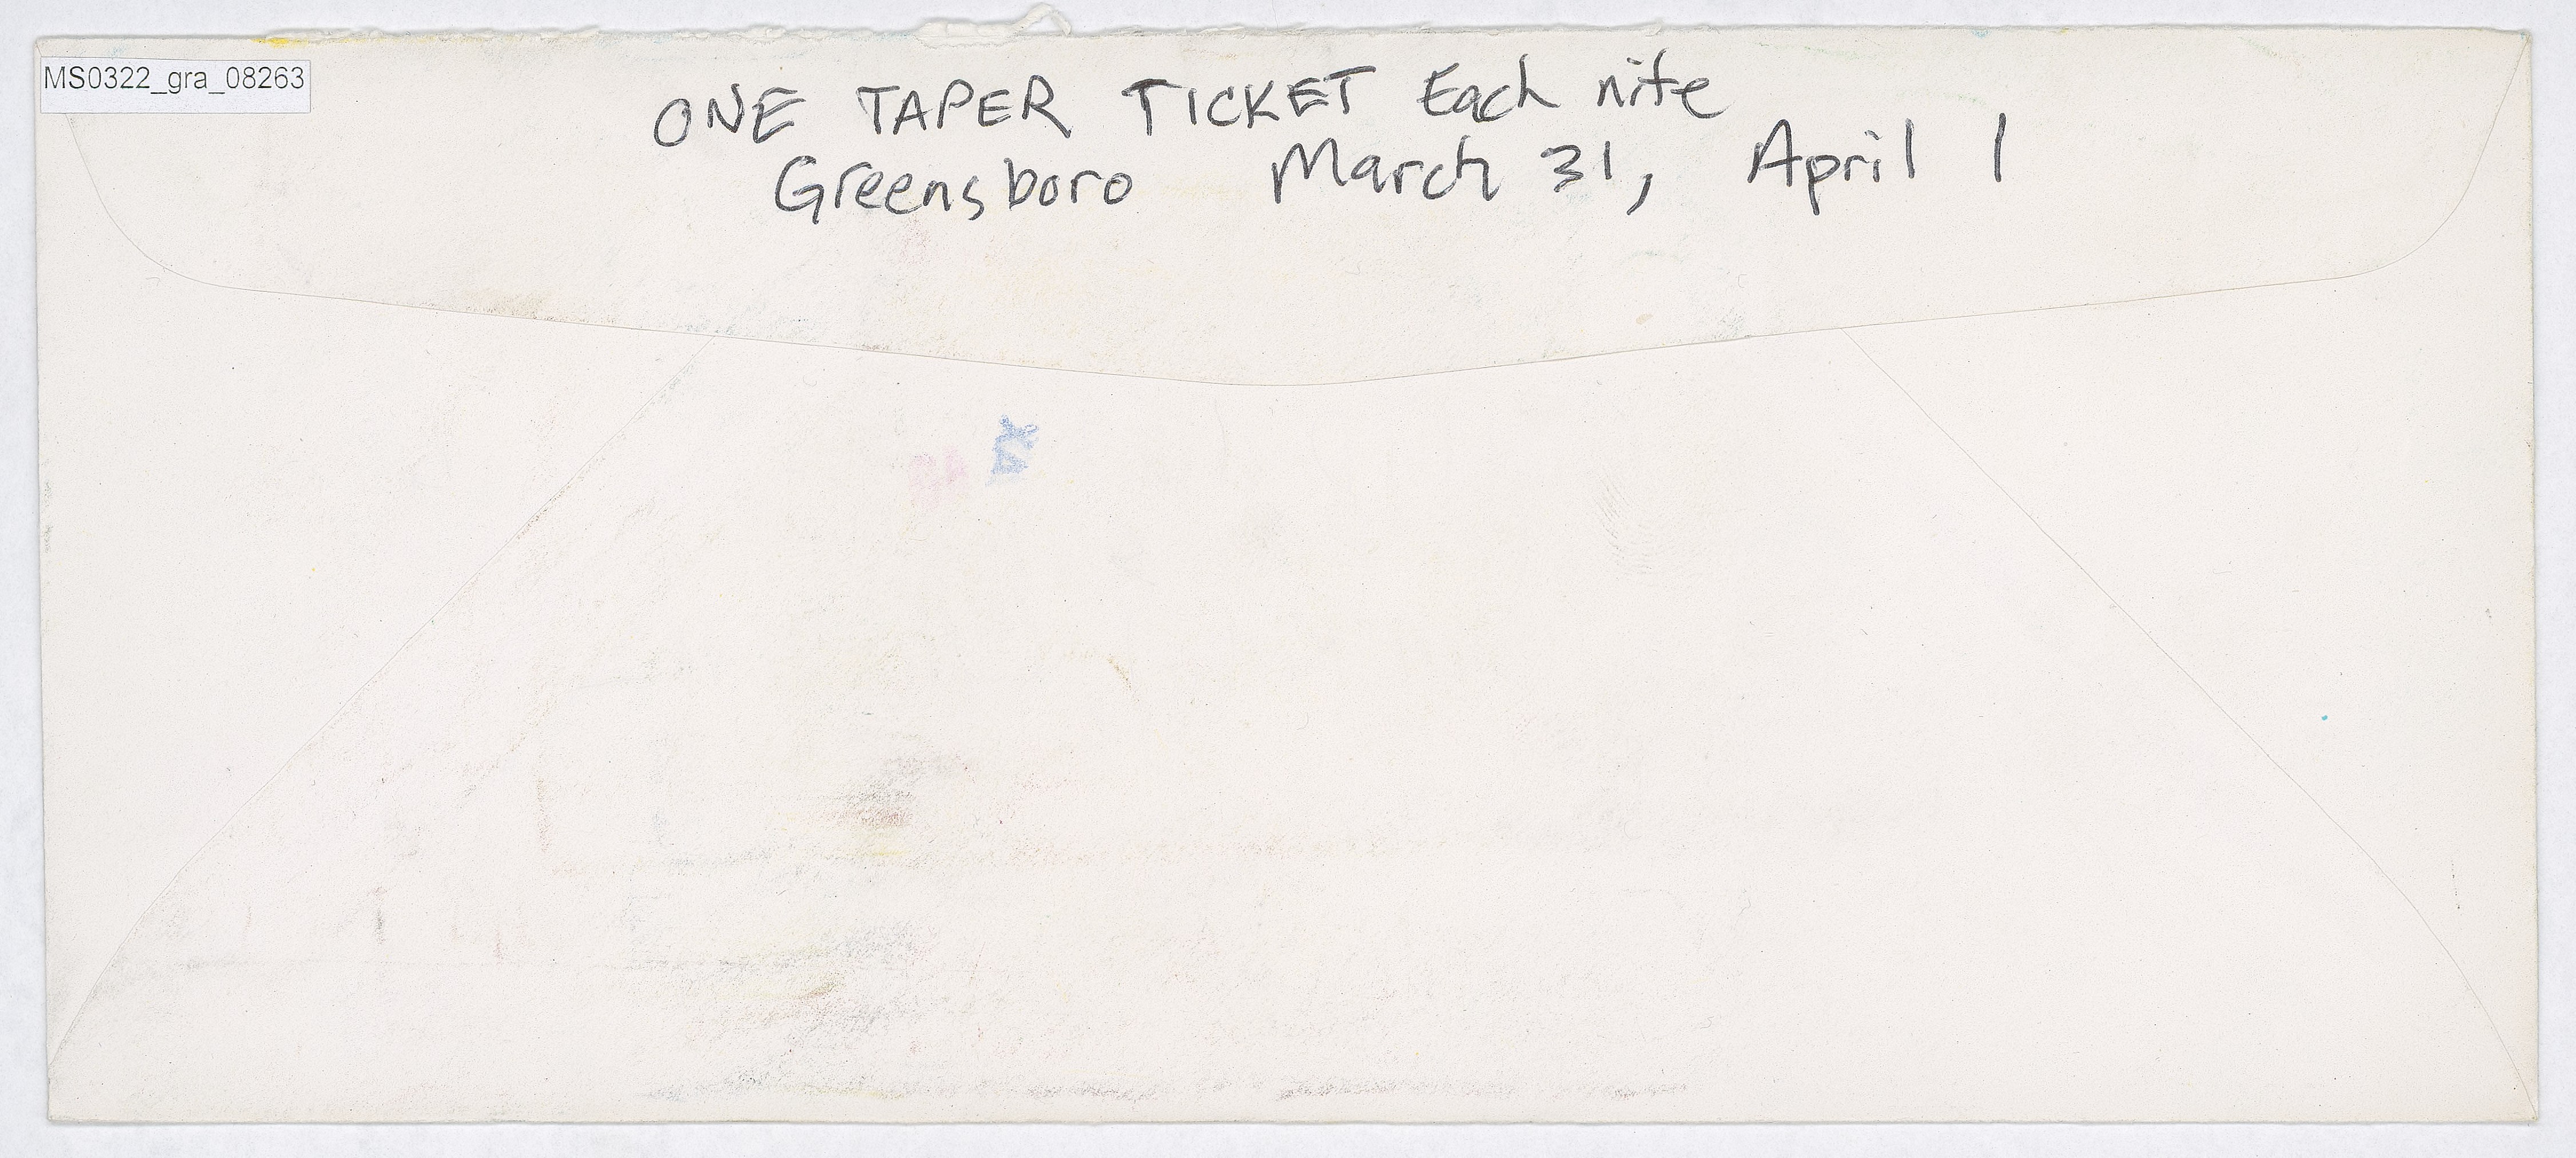 MS0322_gra_08263
ONE TAPER TICKET Each nite
Greensboro March 31, April 1